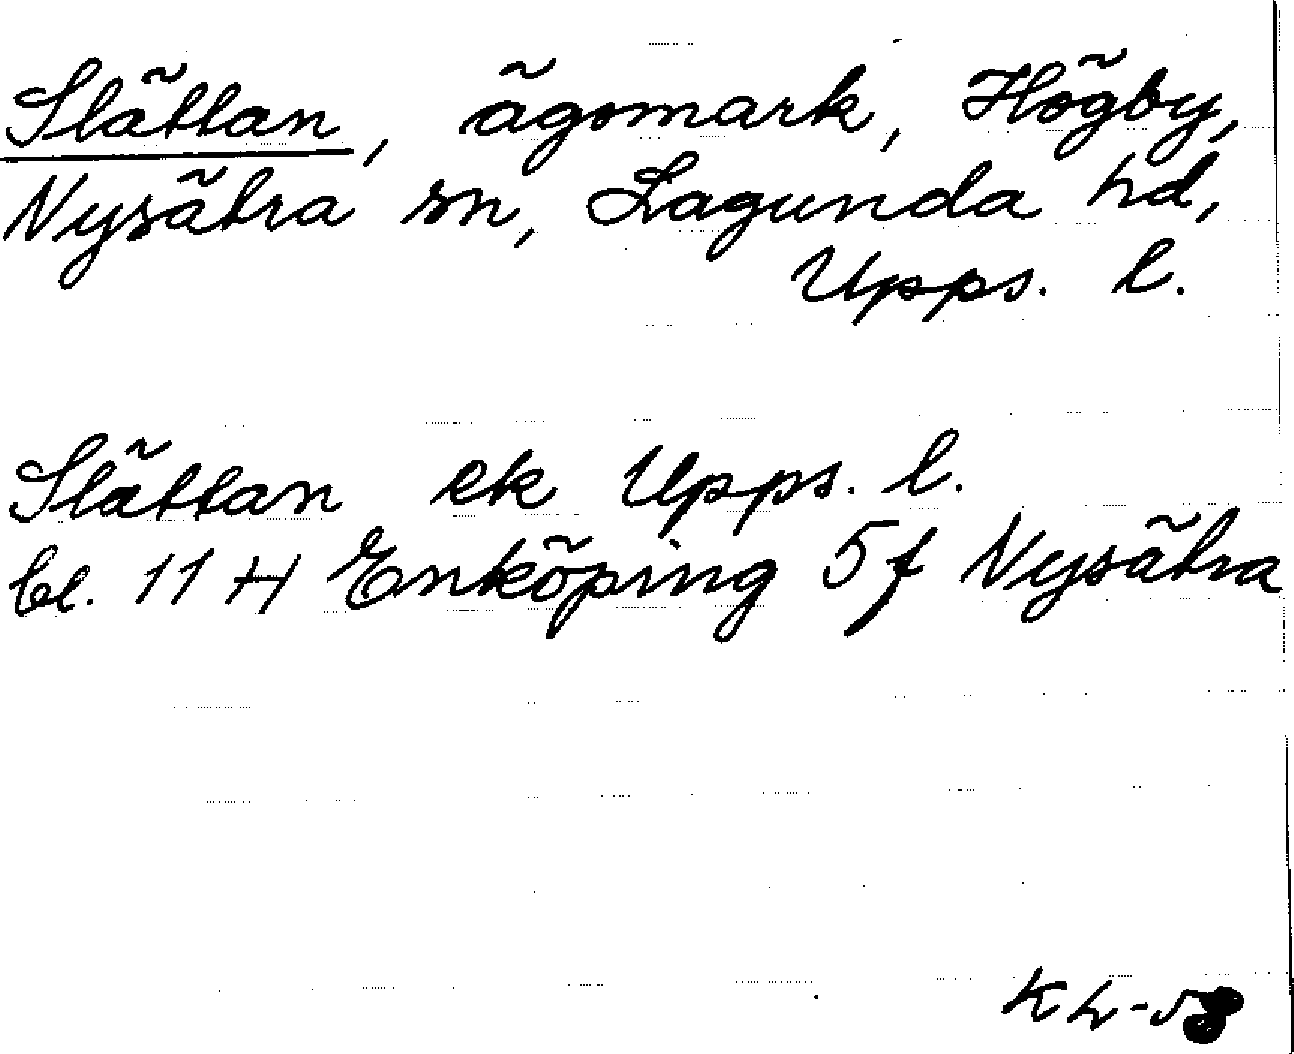 Slättan, ägomark, Högby,
Nysätra sn, Lagunda hd,
Upps. l.
Slättan ek Upps. l.
bl. 11 H Enköping 5f Nysätra
KL-58